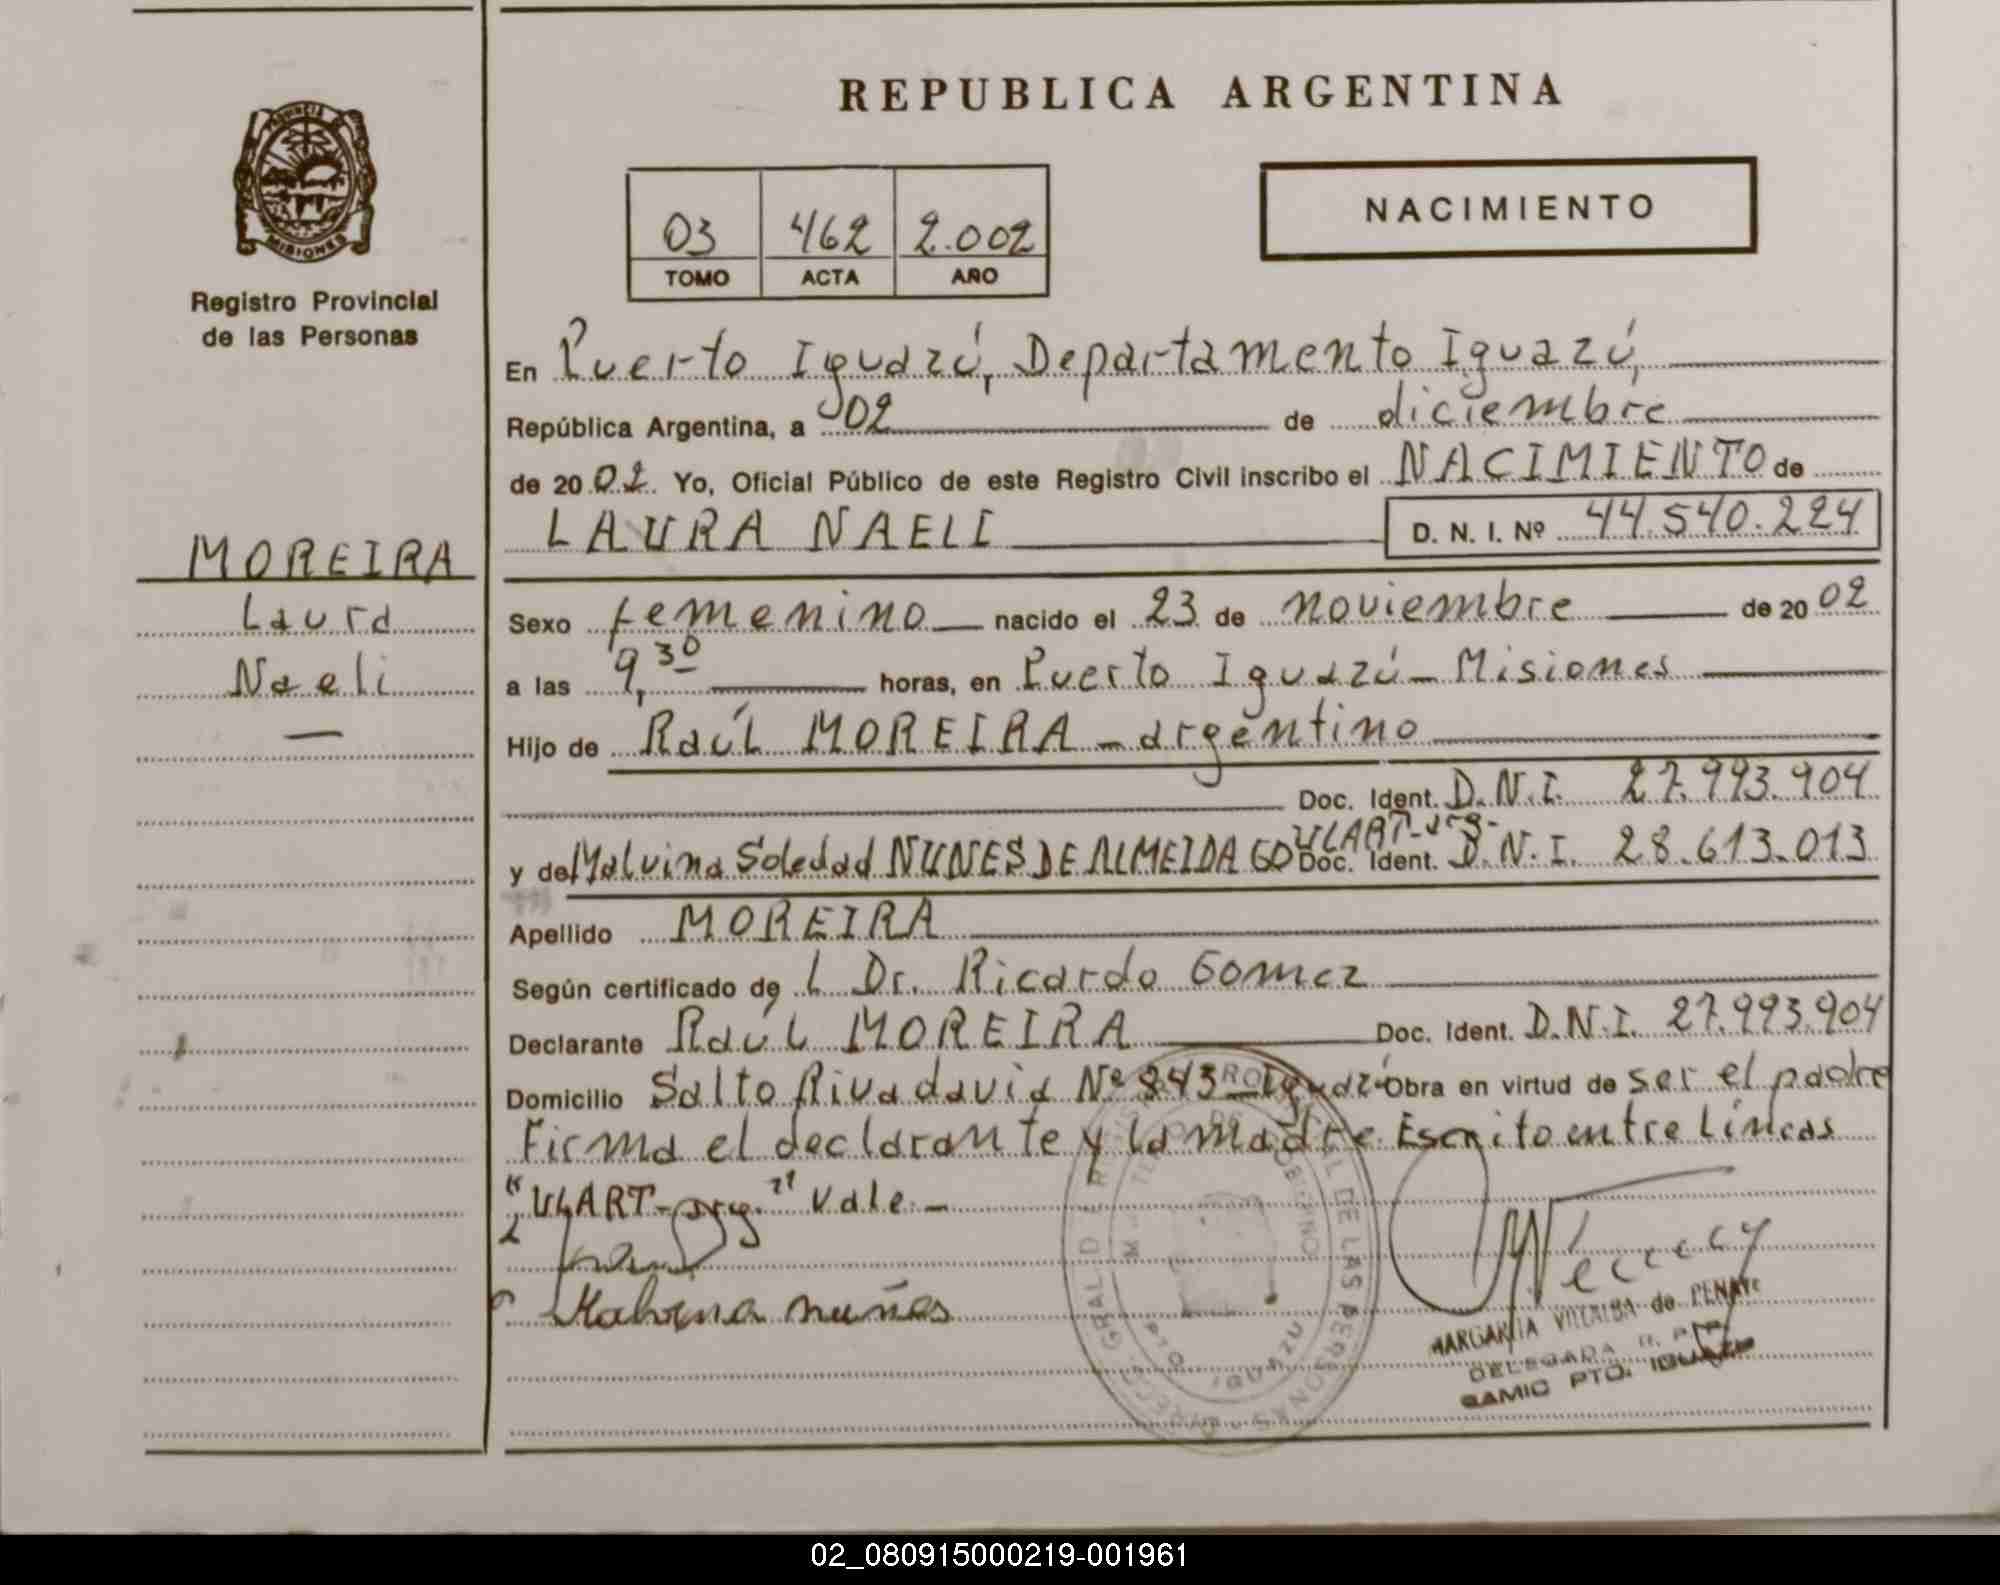 REPUBLICA ARGENTINA
PROVINCIA DE
MISIONES
Registro Provincial
de las Personas
NACIMIENTO
03 462 2.002
TOMO ACTA AÑO
En Puerto Iguazú, Departamento Iguazú,
República Argentina, a 02 de diciembre
de 20 02 Yo, Oficial Público de este Registro Civil inscribo el NACIMIENTO de
LAURA NAELI D. N. I. Nº 44.540.224
MOREIRA
Laura
Naeli
Sexo femenino nacido el 23 de noviembre de 20 02
a las 9,30 horas, en Puerto Iguazú - Misiones
Hijo de Raúl MOREIRA - argentino
Doc. Ident. D.N.I. 27.993.904
ULART-arg-
y de Malvina Soledad NUNES DE ALMEIDA GO Doc. Ident. D.N.I. 28.613.013
Apellido MOREIRA
Según certificado de L Dr. Ricardo Gomez
Declarante Raúl MOREIRA Doc. Ident. D.N.I. 27.993.904
Domicilio Salto Rivadavia Nº 843 - Iguazú Obra en virtud de ser el padre
Firma el declarante y la madre. Escrito entre líneas
"ULART-arg." Vale.-
Malvina nuñes
MARGARITA VILLALBA de
DELEGADA R. P. P.
SAMIC PTO. IGUAZU
DE LAS PERSONAS
PTO IGUAZU
02_080915000219-001961